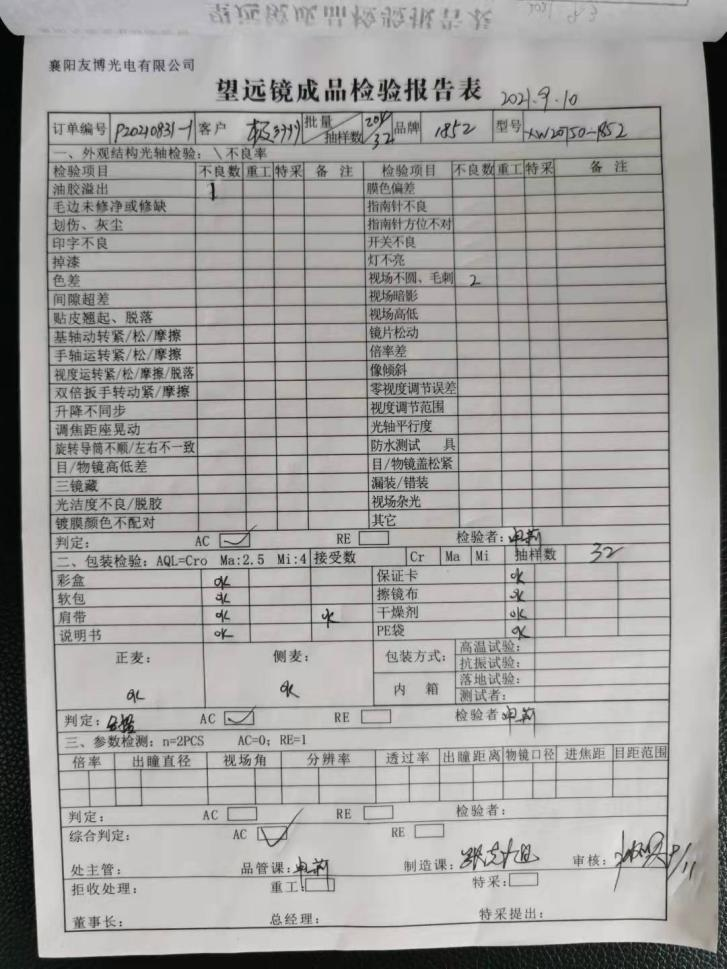 襄阳友博光电有限公司
望远镜成品检验报告表 2021.9.10
订单编号 P20210831-1 客户 批量 抽样数 32 品牌 1852 型号 XW20750-1852
一、外观结构光轴检验：\不良率
检验项目 不良数 重工 特采 备 注 检验项目 不良数 重工 特采 备 注
油胶溢出 1 膜色偏差
毛边未修净或修缺 指南针不良
划伤、灰尘 指南针方位不对
印字不良 开关不良
掉漆 灯不亮
色差 视场不圆、毛刺 2
间隙超差 视场暗影
贴皮翘起、脱落 视场高低
基轴动转紧/松/摩擦 镜片松动
手轴运转紧/松/摩擦 倍率差
视度运转紧/松/摩擦/脱落 像倾斜
双倍扳手转动紧/摩擦 零视度调节误差
升降不同步 视度调节范围
调焦距座晃动 光轴平行度
旋转导筒不顺/左右不一致 防水测试 具
目/物镜高低差 目/物镜盖松紧
三镜藏 漏装/错装
光洁度不良/脱胶 视场杂光
镀膜颜色不配对 其它
判定： AC RE 检验者：
二、包装检验：AQL=Cro Ma:2.5 Mi:4 接受数 Cr Ma Mi 抽样数 32
彩盒 ok 保证卡 ok
软包 ok 擦镜布 ok
肩带 ok ok 干燥剂 ok
说明书 ok PE袋 ok
正麦： 侧麦： 包装方式： 高温试验：
抗振试验：
ok ok 内 箱 落地试验：
测试者：
判定： AC RE 检验者
三、参数检测：n=2PCS AC=0；RE=1
倍率 出瞳直径 视场角 分辨率 透过率 出瞳距离 物镜口径 进焦距 目距范围
判定： AC RE 检验者：
综合判定： AC RE
处主管： 品管课： 制造课： 审核： 9/11
拒收处理： 重工： 特采：
董事长： 总经理： 特采提出：